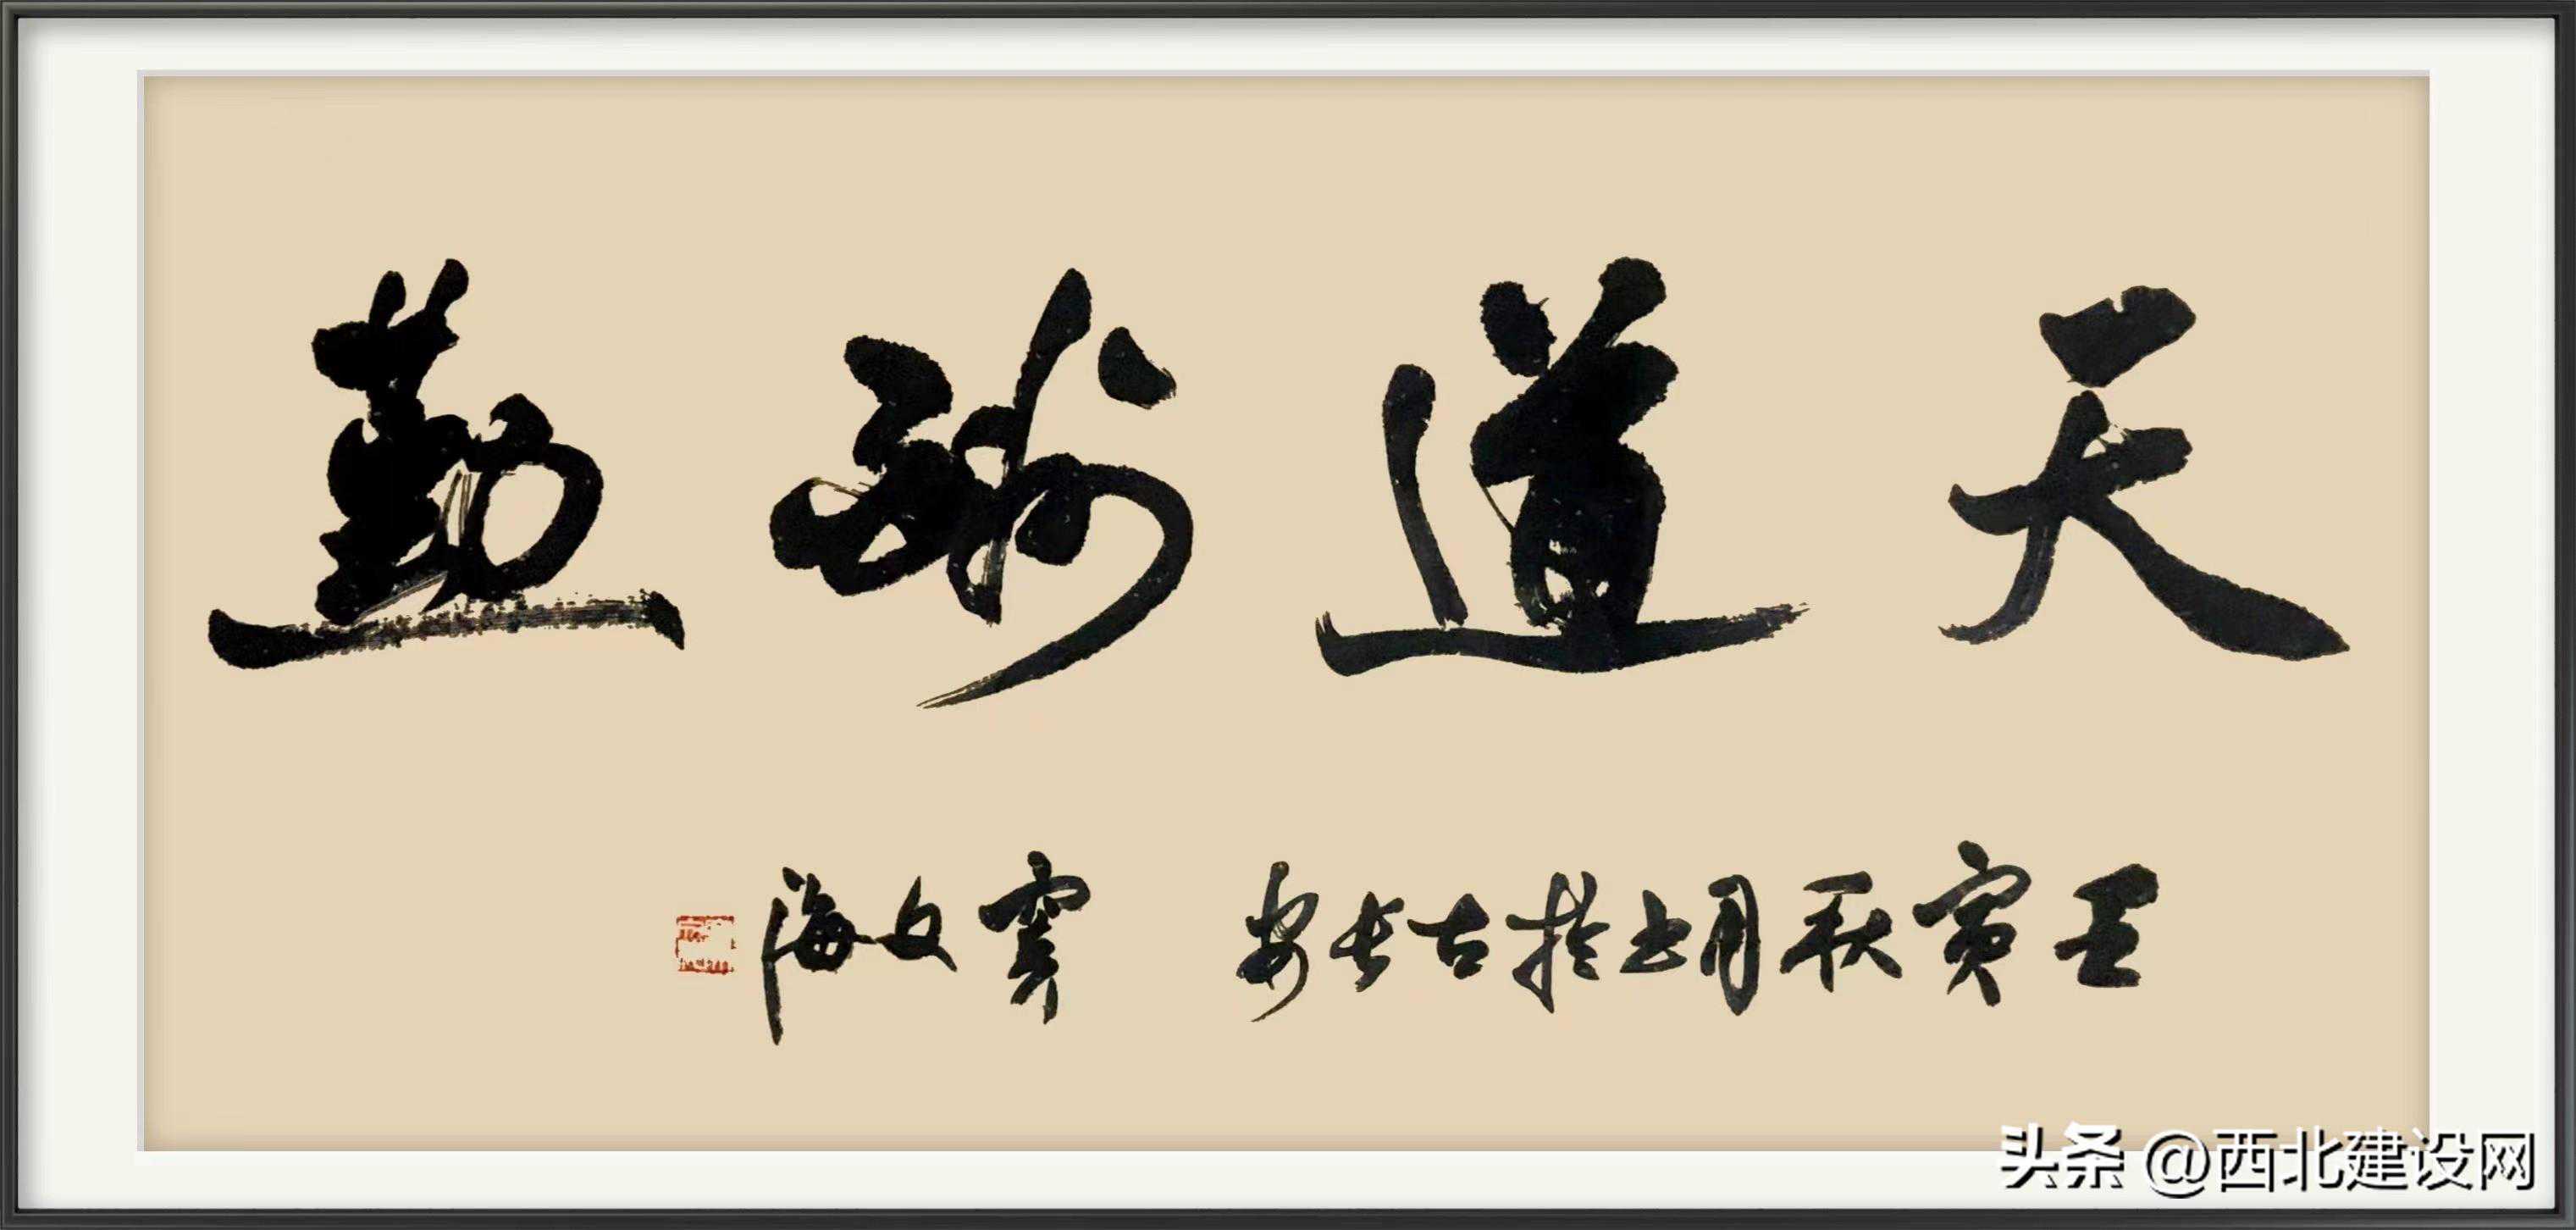 天道酬勤
壬寅秋月书於古长安 文海
头条 @西北建设网